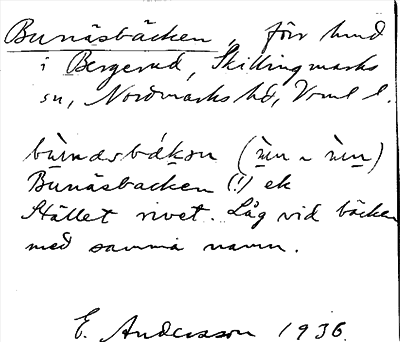 Bunäsbäcken, förr hmd
i Bergerud, Skillingmarks
sn, Nordmarks hd, Vrml l.
bùnɑsbǻkɔn (ùn ~ ùn)
Bunäsbacken (!) ek
Stället rivet. Låg vid bäcken
med samma namn.
E. Andersson 1936.